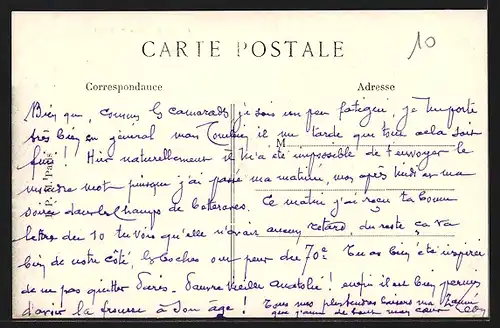 10
CARTE POSTALE
Correspondance
Adresse
M
Bien que, comme les camarades je sois un peu fatigué je me porte
très bien en général mon il me tarde que tout cela soit
fini ! Hier naturellement il m'a été impossible de t'envoyer le
moindre mot puisque j'ai passé ma matinée, mon après midi et ma
soirée dans les champs de betteraves. Ce matin j'ai reçu ta bonne
lettre du 10 tu vois qu'elle n'avait aucun retard, du reste ça va
bien de notre côté, les boches ont peur du 70e. Tu as bien été inspirée
de ne pas quitter Paris. Pauvre vieille Anatolie ! enfin il est bien permis
d'avoir la frousse à son âge ! Tous mes plus tendres baisers ma
que j'aime de tout mon cœur